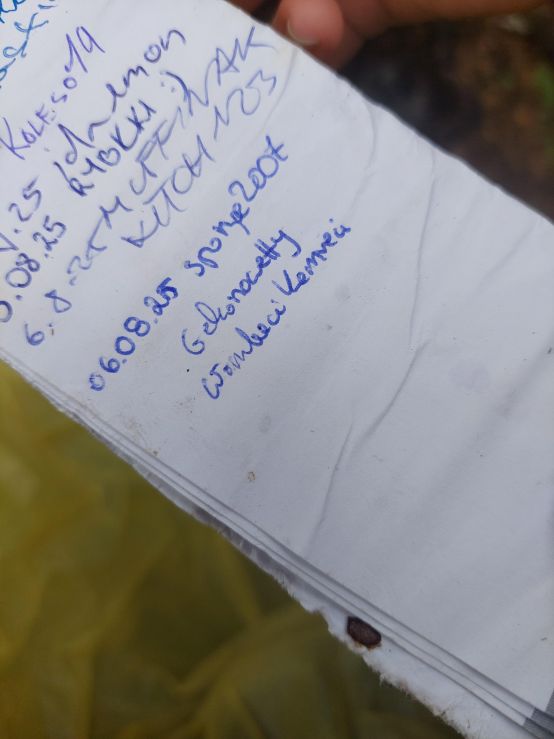 KOLESO19
.25 idhlemon
.08.25 RYBKKI :)
6.8.25 MUFFINAK
KITCH123
06.08.25 Sponge2007
Gekonowetty
Wombaci Kermieci